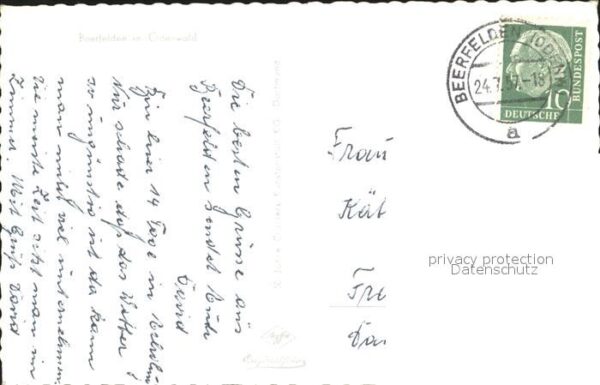 Beerfelden im Odenwald
Die besten Grüsse aus
Beerfelden sendet
Bin hier 14 Tage in
Nur schade daß das Wetter
so ungünstig ist da kann
man nicht viel unternehmen
die meiste Zeit sitzt man im
Zimmer. Mit Gruß
Frau
Kät
Fre
Da
BEERFELDEN (ODENW)
24.7.57.-18
a
10
DEUTSCHE
BUNDESPOST
privacy protection
Datenschutz